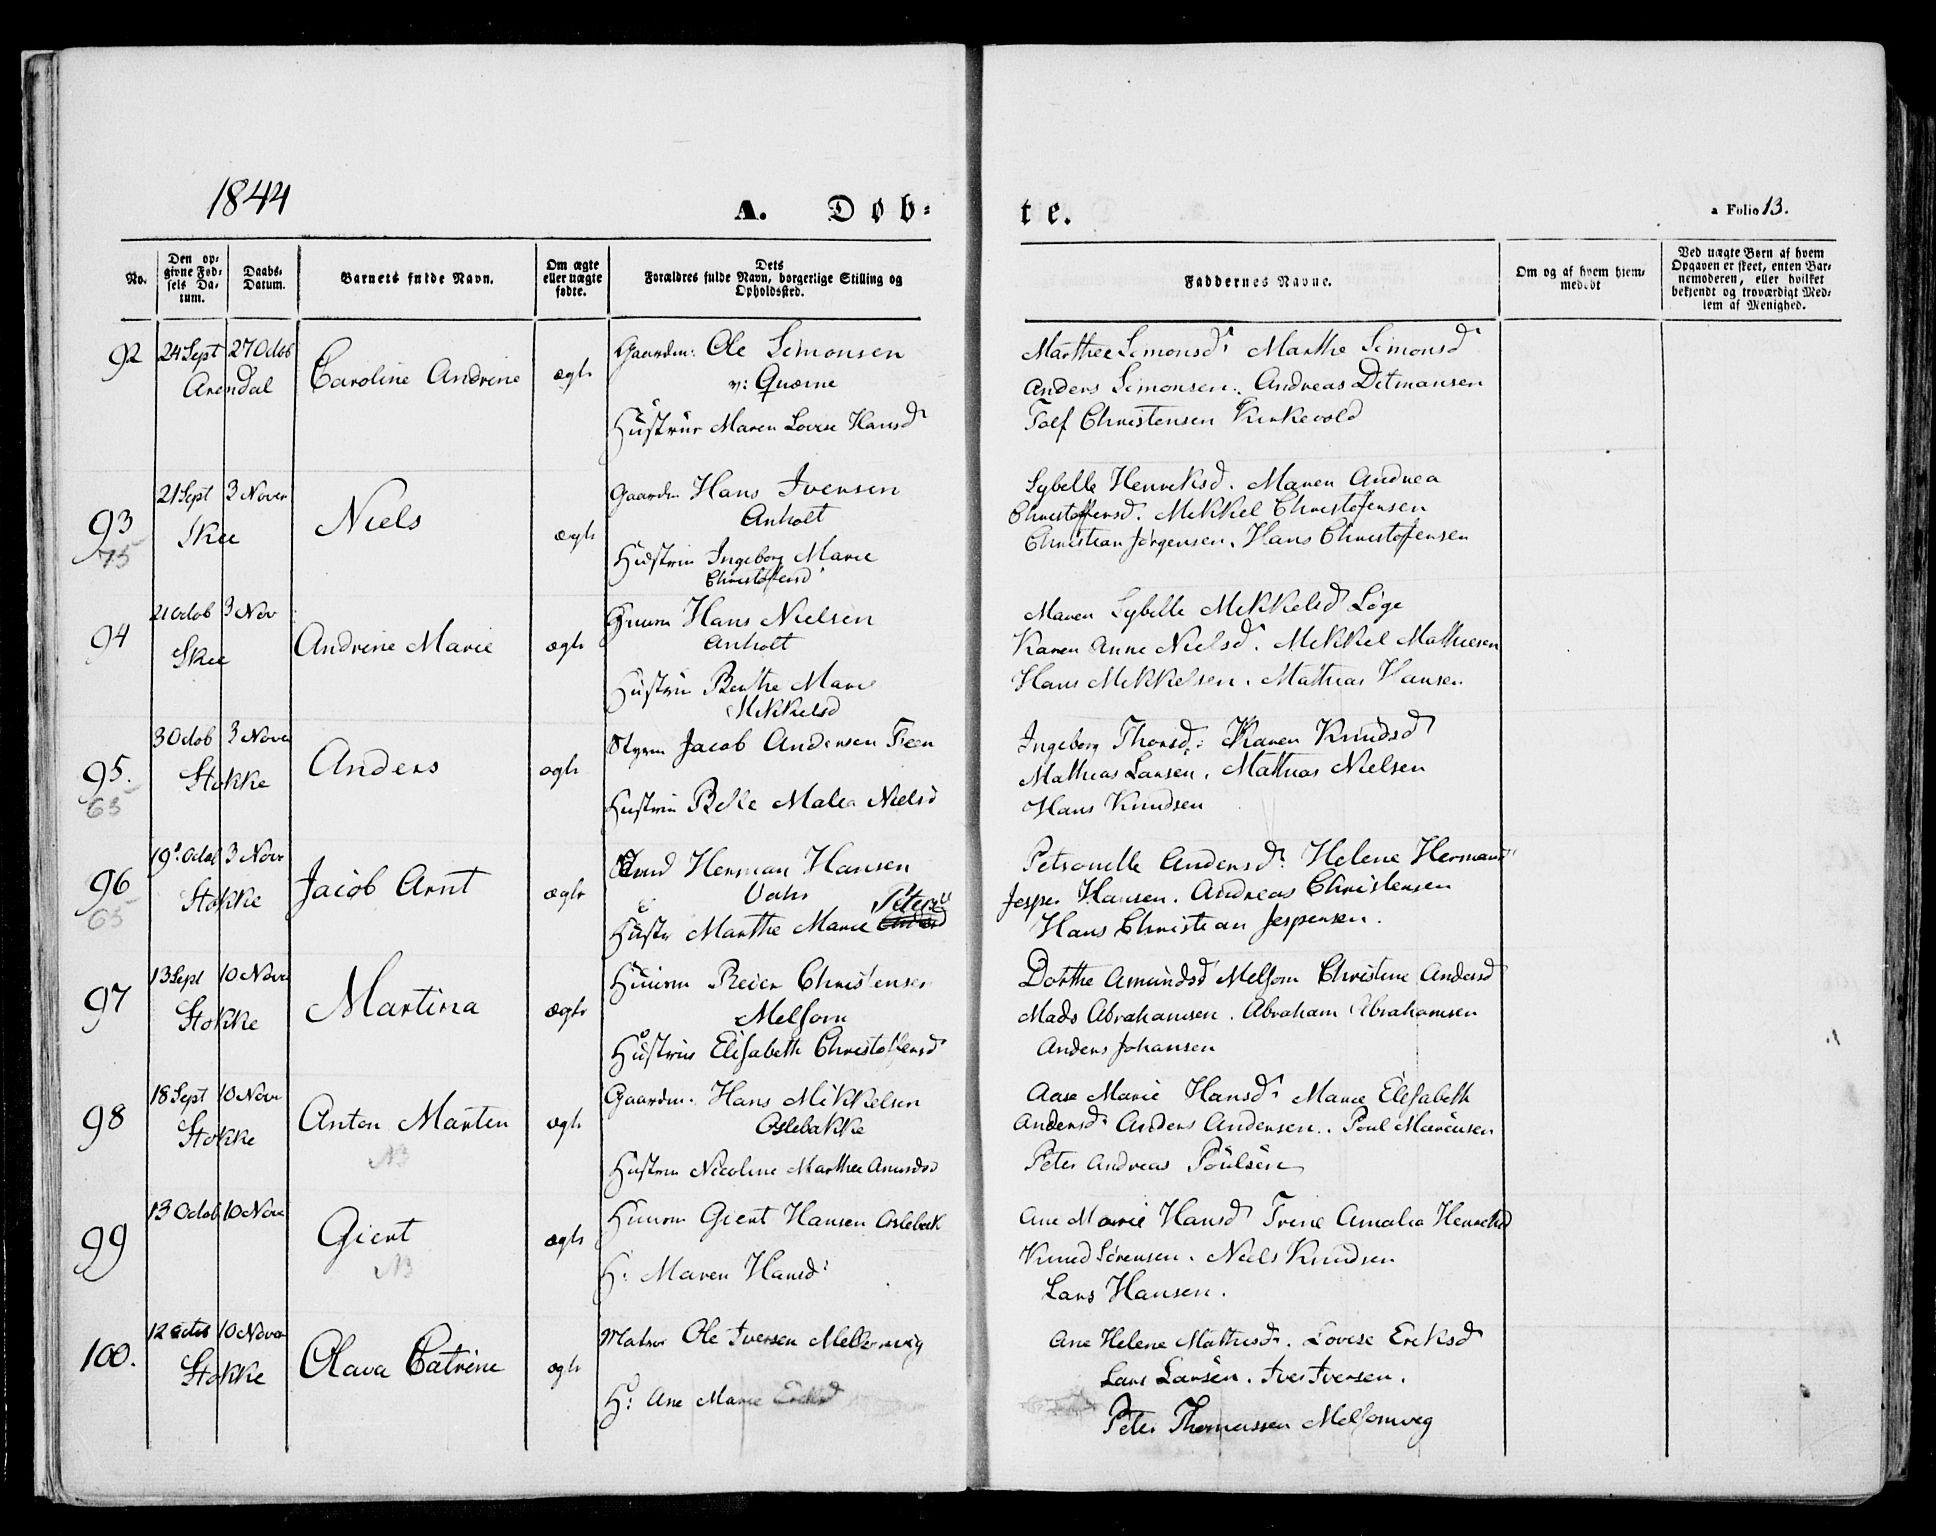 1844
A. Døb-
te.
a Folio 13.
No.
Den op-
givne Fød-
sels Da-
tum.
Daabs-
Datum.
Barnets fulde Navn.
Om ægte
eller uægte
fødte.
Dets
Forældres fulde Navn, borgerlige Stilling og
Opholdssted.
Faddernes Navne.
Om og af hvem hjem-
medøbt
Ved uægte Børn af hvem
Opgaven er skeet, enten Bar-
nemoderen, eller hvilket
bekjendt og troværdigt Med-
lem af Menighed.
92
24 Sept 27 Octob
Arendal
Caroline Andrine
ægte
Gaardm: Ole Simonsen
v: Qværne
Hustrue Maren Lovise Hansd
Marthee Simonsd: Marthe Simonsd
Anders Simonsen. Andreas Ditmansen
Tolf Christensen Kirkevold
93
75
21 Sept 3 Nover
Skee
Niels
ægte
Gaardm Hans Iversen
Anholt
Hustrue Ingeborg Marie
Christoffersd
Sybelle Henriksd. Maren Andrea
Christoffersd. Mikkel Christofersen
Christian Jørgensen. Hans Christofersen
94
21 Octob 3 Nov
Skee
Andrine Marie
ægte
Huusm Hans Nielsen
Anholt
Hustrue Berthe Marie
Mikkelsd
Maren Sybille Mikkelsd Løge
Karen Anne Nielsd. Mikkel Mathiesen
Hans Mikkelsen. Mathias Hansen
95.
65
3 Octob 3 Nover
Stokke
Anders
ægte
Styrm Jacob Andersen Feen
Hustrue Belle Malea Nielsd
Ingeborg Thorsd: Karen Knudsd
Mathias Larsen. Mathias Nielsen
Hans Knudsen
96
65
19 Octob 3 Nov
Stokke
Jacob Arnt
ægte
Herman Hansen
Hustr Marthe Marie Petersd
Petronelle Andersd: Helene Hermansd
Jesper Hansen. Andreas Christensen
Hans Christian Jespersen.
97
13 Sept 10 Nover
Stokke
Martina
ægte
Huusm Reier Christensen
Melsom
Hustrue Elisabeth Christoffersd
Dorthe Amundsd Melsom Christine Andersd
Mads Abrahamsen. Abraham Abrahamsen
Anders Johansen
98
18 Sept 10 Nove
Stokke
Anton Marten
NB
ægte
Gaardm. Hans Mikkelsen
Oslebakke
Hustrue Nicoline Marthee Amundsd
Aase Marie Hansd. Marie Elisabeth
Andersd Anders Andersen. Poul Marcusen
Peter Andreas Poulsen
99
13 Octob 10 Nove
Giert
NB
ægte
Huusm Giert Hansen Oslebak
H: Maren Hansd:
Ane Marie Hansd Trine Amalia Henriksd
Knud Sørensen. Niels Knudsen
Lars Hansen.
100.
12 Octob 10 Nover
Stokke
Olava Catrine
ægte
Matros Ole Iversen Melsomvig
H: Ane Marie Eriksd
Ane Helene Mathisd. Lovise Eriksd
Lars Larsen. Iver Iversen.
Peter Thomassen Melsomveg